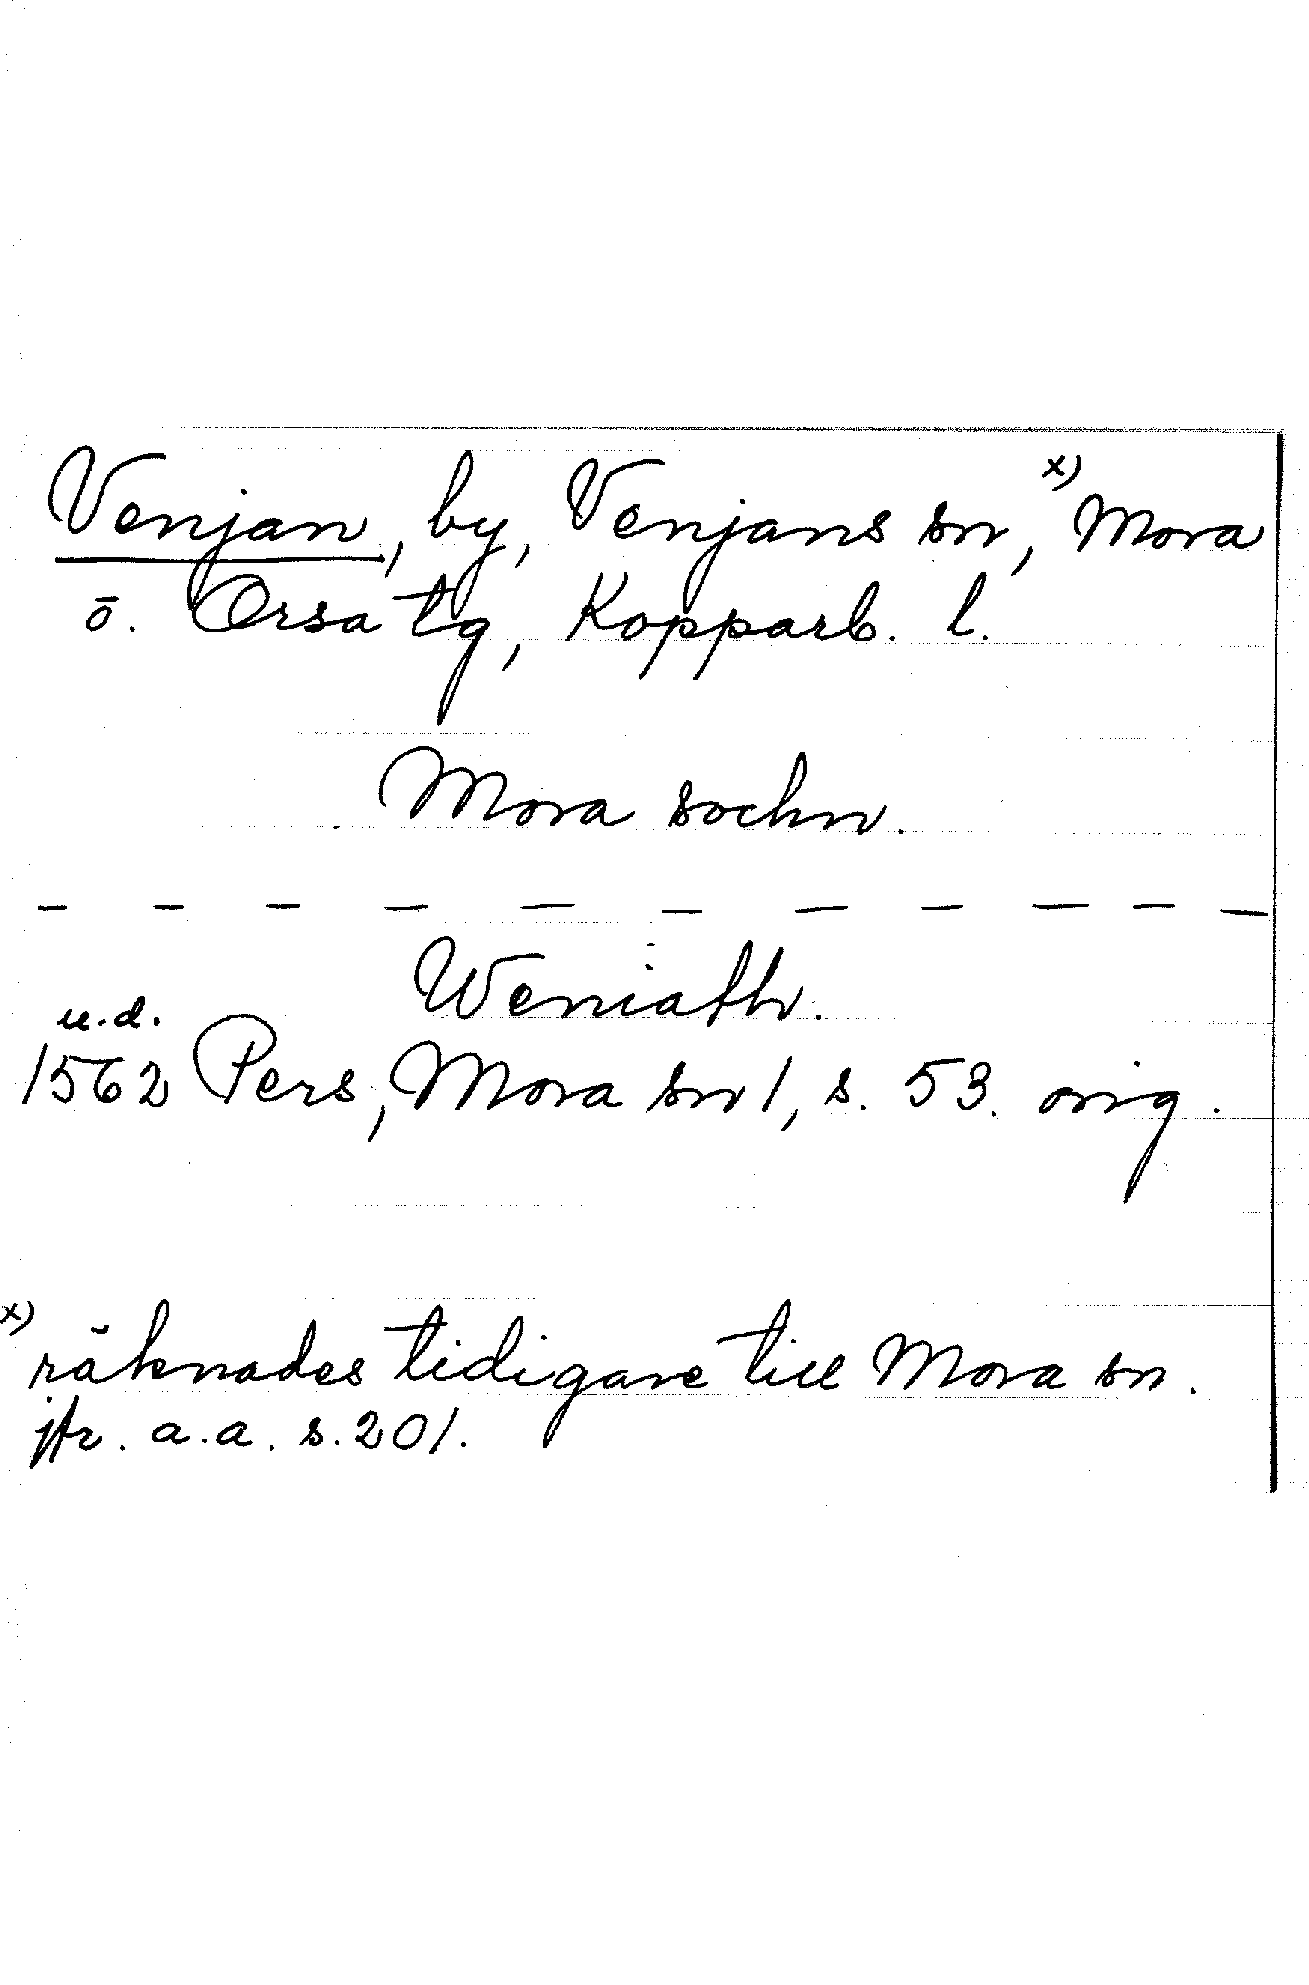 Venjan, by, Venjans sn, x) Mora
o. Orsa tg, Kopparb. l.
Mora sochn.
— — — — — — — — — — —
Weniath.
u.d.
1562 Pers, Mora sn 1, s. 53. orig.
x) räknades tidigare till Mora sn.
jfr. a.a. s. 201.